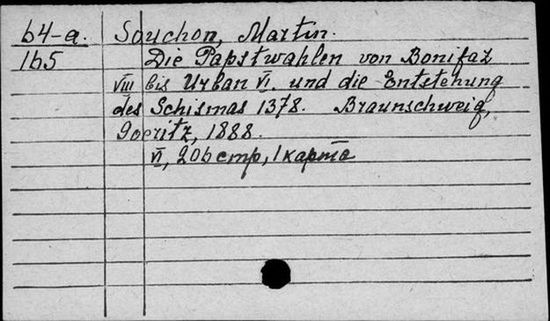 64-a. Souchon, Martin.
165 Die Papstwahlen von Bonifaz
VIII bis Urban VI. und die Entstehung
des Schismas 1378. Braunschweig,
Goeritz, 1888.
VI, 206 стр, 1 карта